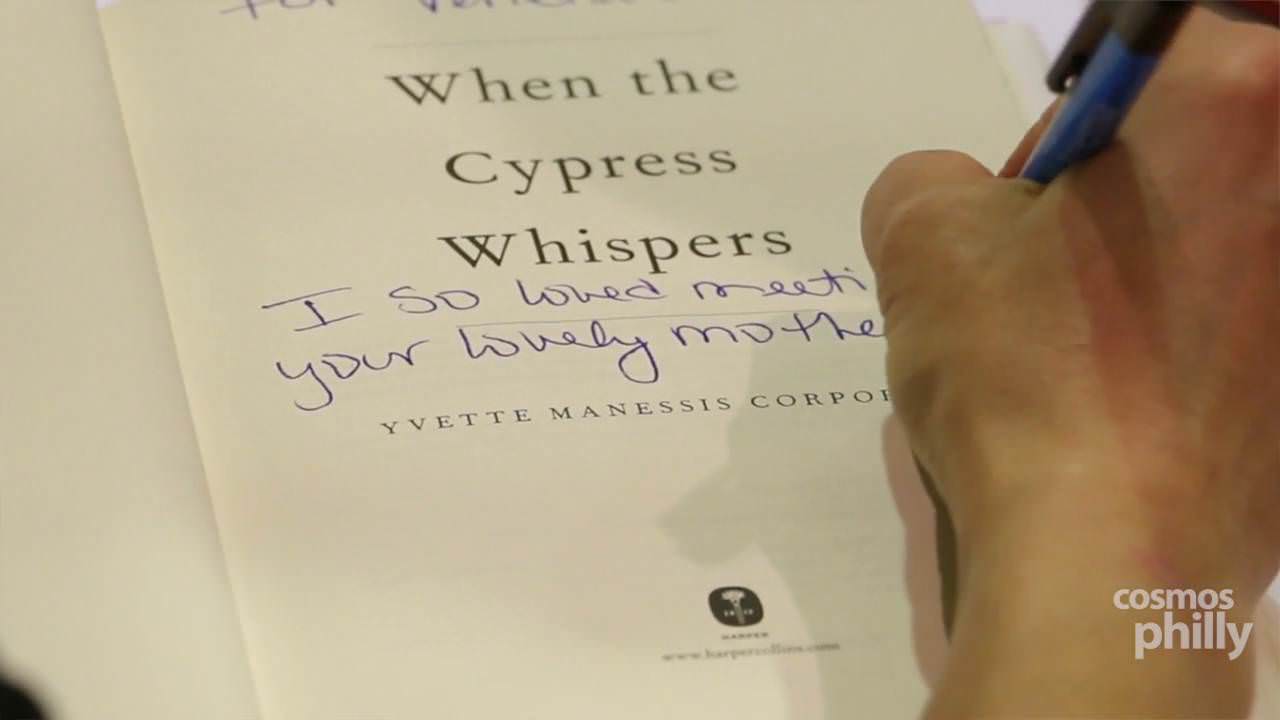 for
When the
Cypress
Whispers
I so loved meeti
your lovely mothe
YVETTE MANESSIS CORPOR
HARPER
www.harpercollins.com
cosmos
philly